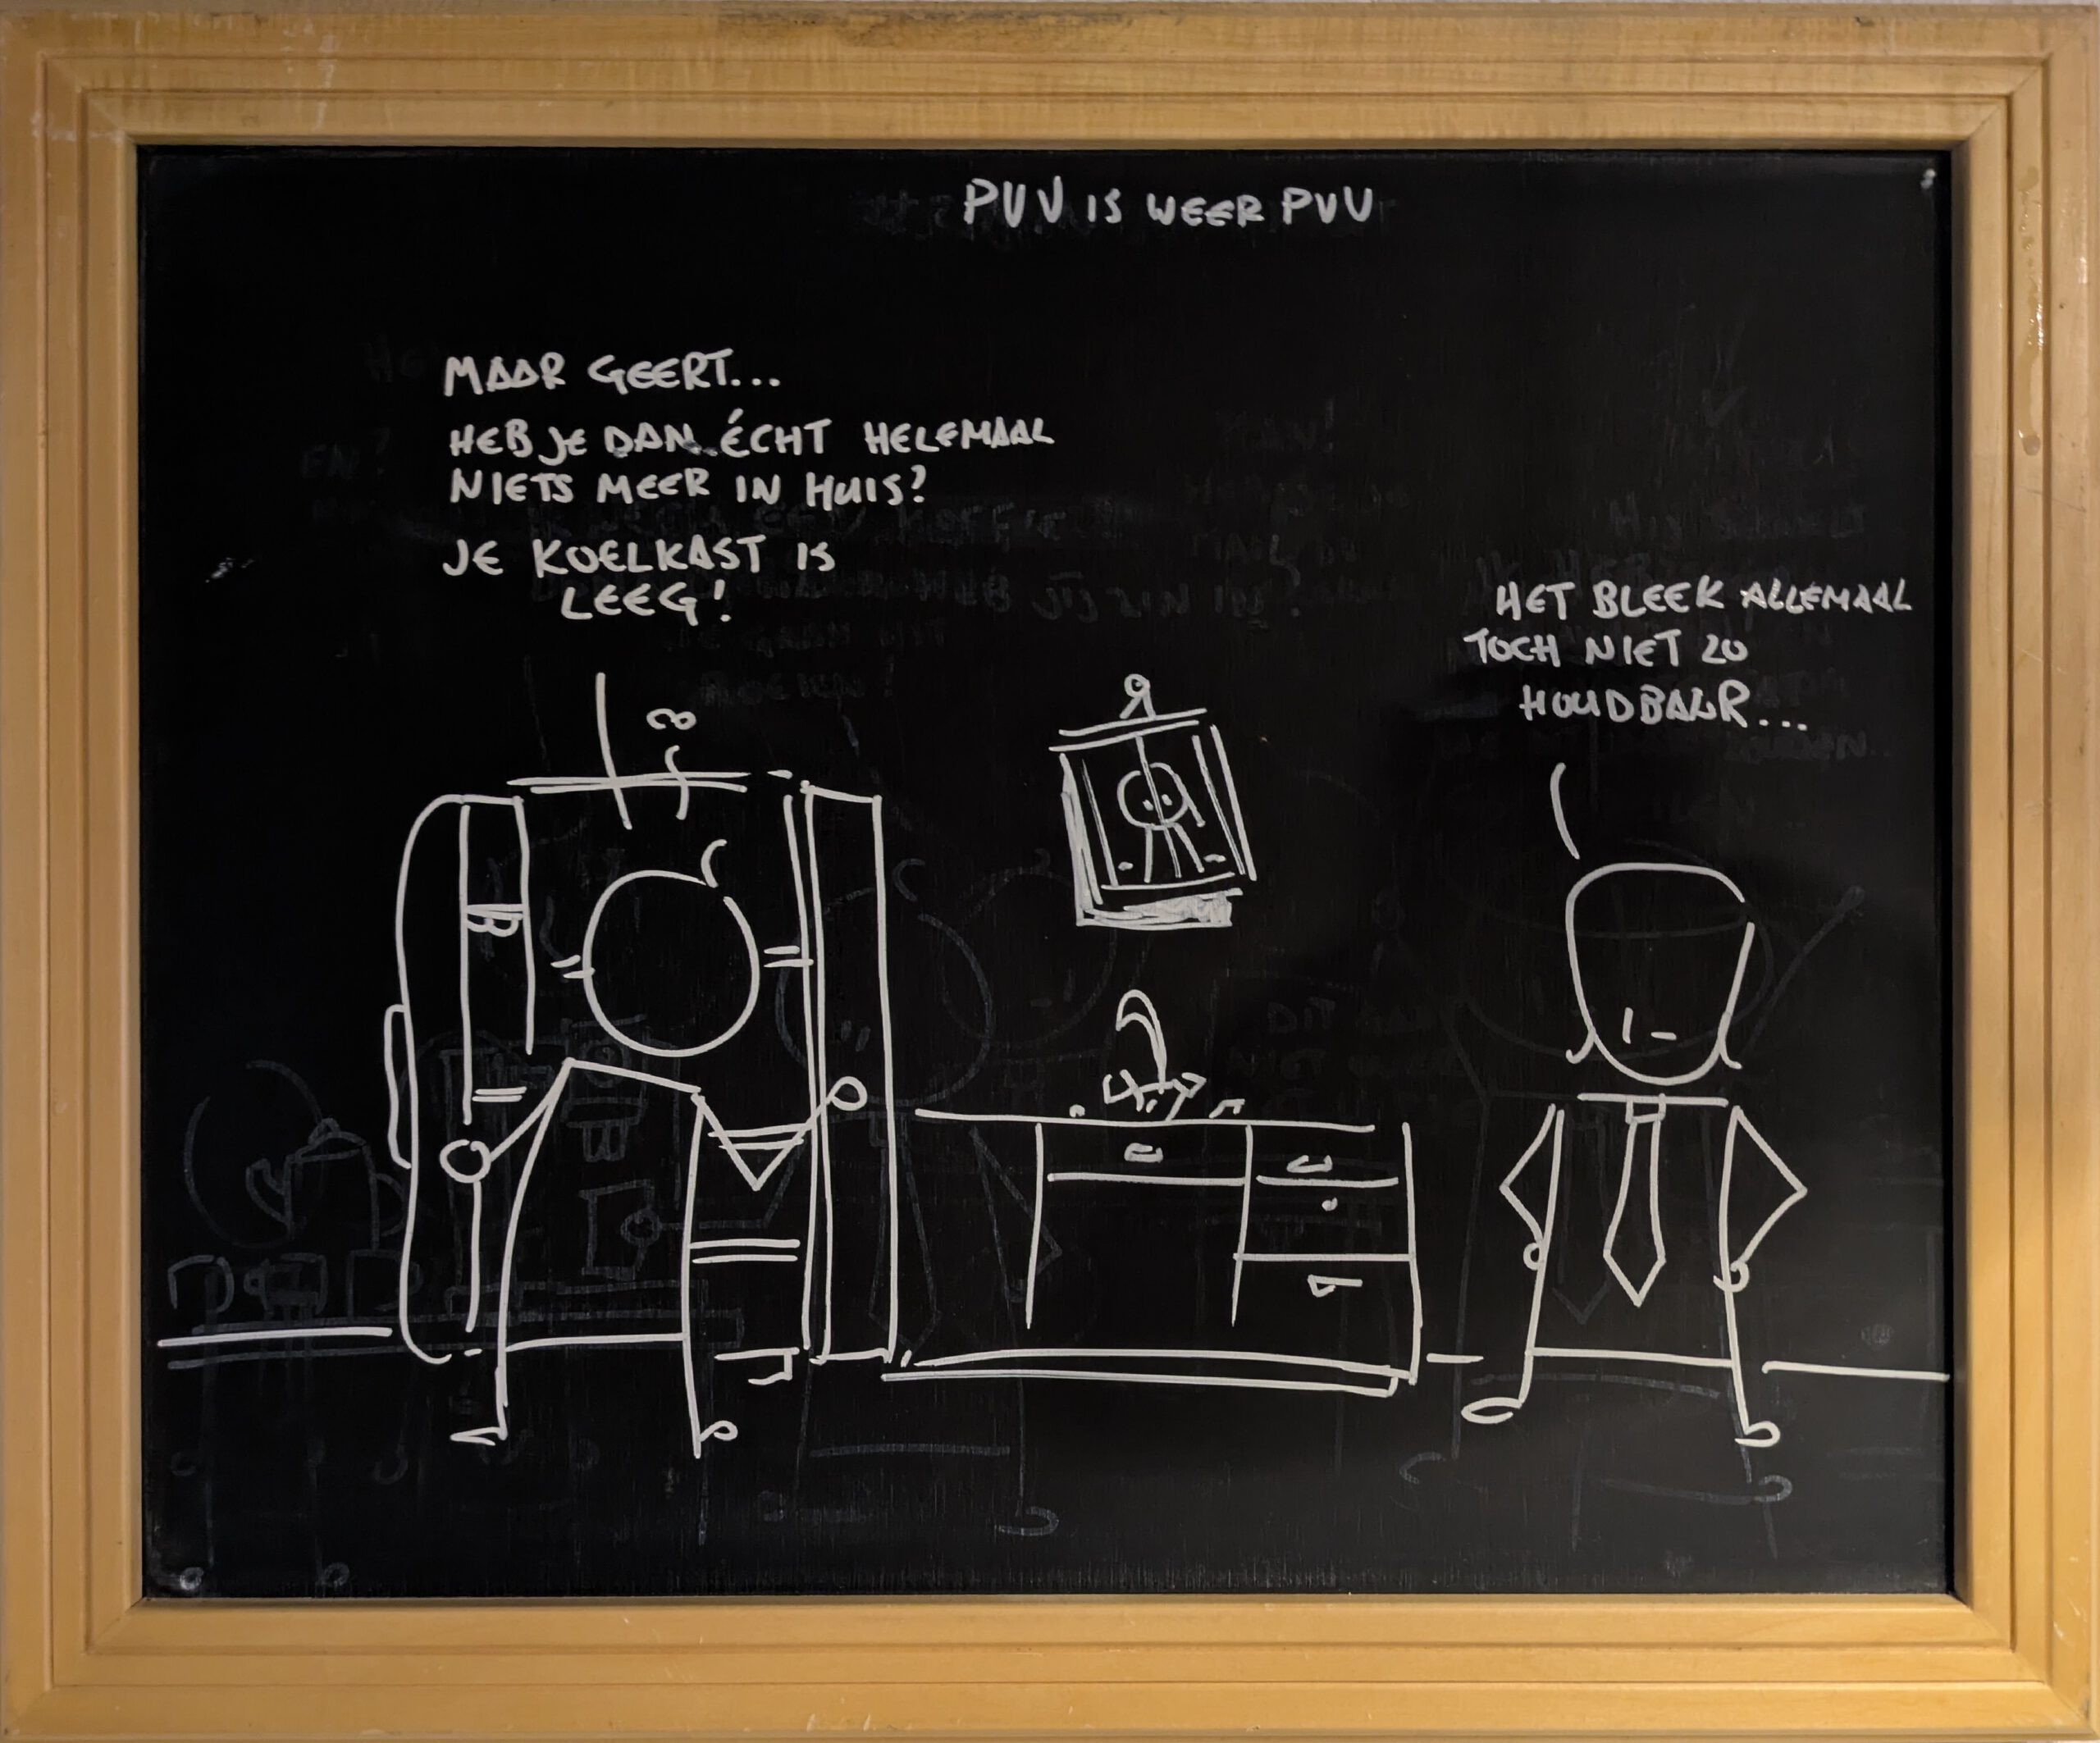 PVV IS WEER PVV
MAAR GEERT...
HEB JE DAN ÉCHT HELEMAAL
NIETS MEER IN HUIS?
JE KOELKAST IS
LEEG!
HET BLEEK ALLEMAAL
TOCH NIET ZO
HOUDBAAR...